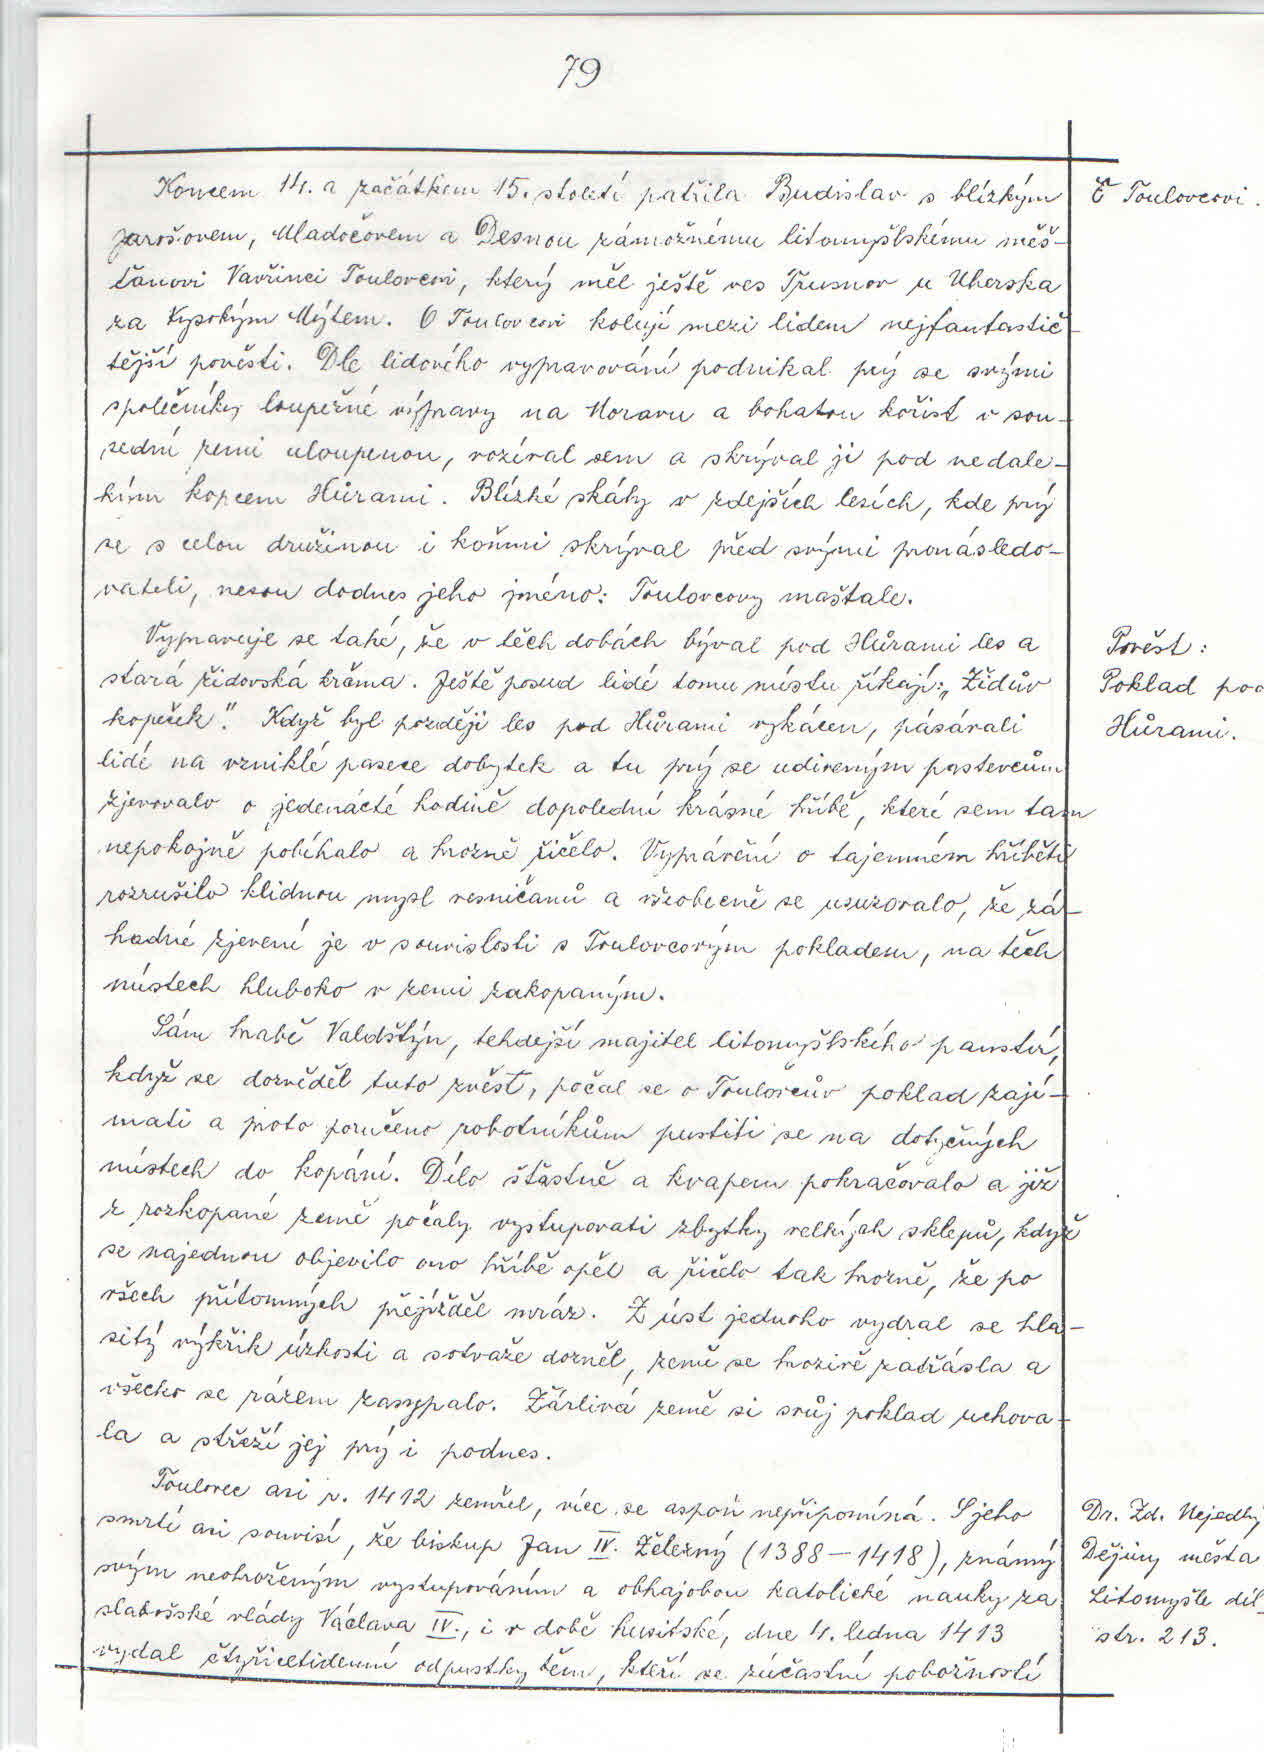 79
Koncem 14. a začátkem 15. století patřila Budislav s blízkým
Č Toulovcovi.
Jarošovem, Mladočovem a Desnou zámožnému litomyšlskému měš-
ťanovi Vavřinci Toulovcovi, který měl ještě ves Trusnov u Uherska
za Vysokým Mýtem. O Toulovcovi kolují mezi lidem nejfantastič-
tější pověsti. Dle lidového vypravování podnikal prý se svými
společníky loupežné výpravy na Moravu a bohatou kořist v sou-
sední zemi uloupenou, vozíval sem a skrýval ji pod nedale-
kým kopcem Hůrami. Blízké skály v zdejších lesích, kde prý
se s celou družinou i koňmi skrýval před svými pronásledo-
vateli, nesou dodnes jeho jméno: Toulovcovy maštale.
Vypravuje se také, že v těch dobách býval pod Hůrami les a
Pověst:
stará židovská krčma. Ještě posud lidé tomu místu říkají: „Židův
Poklad pod
kopeček". Když byl později les pod Hůrami vykácen, pásávali
Hůrami.
lidé na vzniklé pasece dobytek a tu prý se udiveným pastevcům
zjevovalo o jedenácté hodině dopolední krásné hříbě, které sem tam
nepokojně pobíhalo a hrozně řičelo. Vyprávění o tajemném hříběti
rozrušilo klidnou mysl vesničanů a všeobecně se usuzovalo, že zá-
hadné zjevení je v souvislosti s Toulovcovým pokladem, na těch
místech hluboko v zemi zakopaným.
Sám hrabě Valdštýn, tehdejší majitel litomyšlského panství,
když se dozvěděl tuto zvěst, počal se o Toulovcův poklad zají-
mati a proto poručeno robotníkům pustiti se na dotyčných
místech do kopání. Dílo šťastně a kvapem pokračovalo a již
z rozkopané země počaly vystupovati zbytky velkých sklepů, když
se najednou objevilo ono hříbě opět a řičelo tak hrozně, že po
všech přítomných přejížděl mráz. Z úst jednoho vydral se hla-
sitý výkřik úzkosti a sotvaže dozněl, země se hrozivě zatřásla a
všecko se rázem zasypalo. Žárlivá země si svůj poklad uchova-
la a střeží jej prý i podnes.
Toulovec asi r. 1412 zemřel, více se aspoň nepřipomíná. S jeho
Dr. Zd. Nejedlý
smrtí asi souvisí, že biskup Jan IV. Železný (1388–1418), známý
Dějiny města
svým neohroženým vystupováním a obhajobou katolické nauky za
Litomyšle díl
slabošské vlády Václava IV., i v době husitské, dne 4. ledna 1413
str. 213.
vydal čtyřicetidenní odpustky těm, kteří se zúčastní pobožností